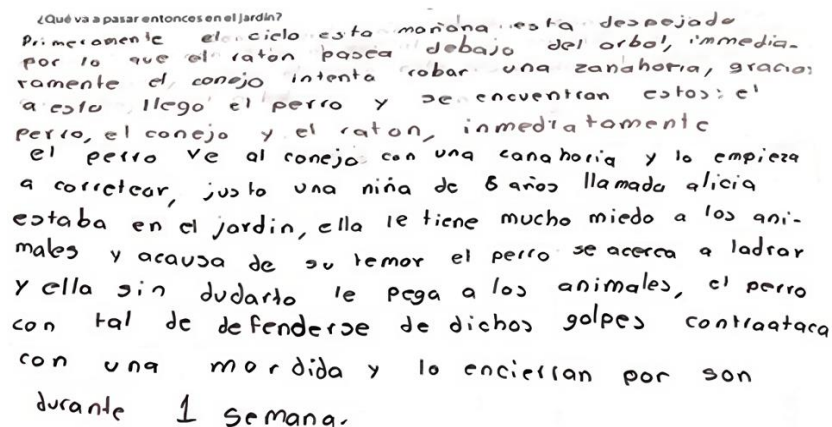 ¿Qué va a pasar entonces en el Jardín?
Primeramente el cielo esta mañana esta despejado
por lo que el ratón pasea debajo del arbol, immedia-
tamente el conejo intenta robar una zanahoria, gracias
a esto llego el perro y se encuentran estos: el
perro, el conejo y el raton, inmediatamente
el perro ve al conejo con una canahoria y lo empieza
a corretear, justo una niña de 6 años llamada alicia
estaba en el jardin, ella le tiene mucho miedo a los ani-
males y acausa de su temor el perro se acerca a ladrar
y ella sin dudarlo le pega a los animales, el perro
con tal de defenderse de dichos golpes contraataca
con una mordida y lo encierran por son
durante 1 semana.